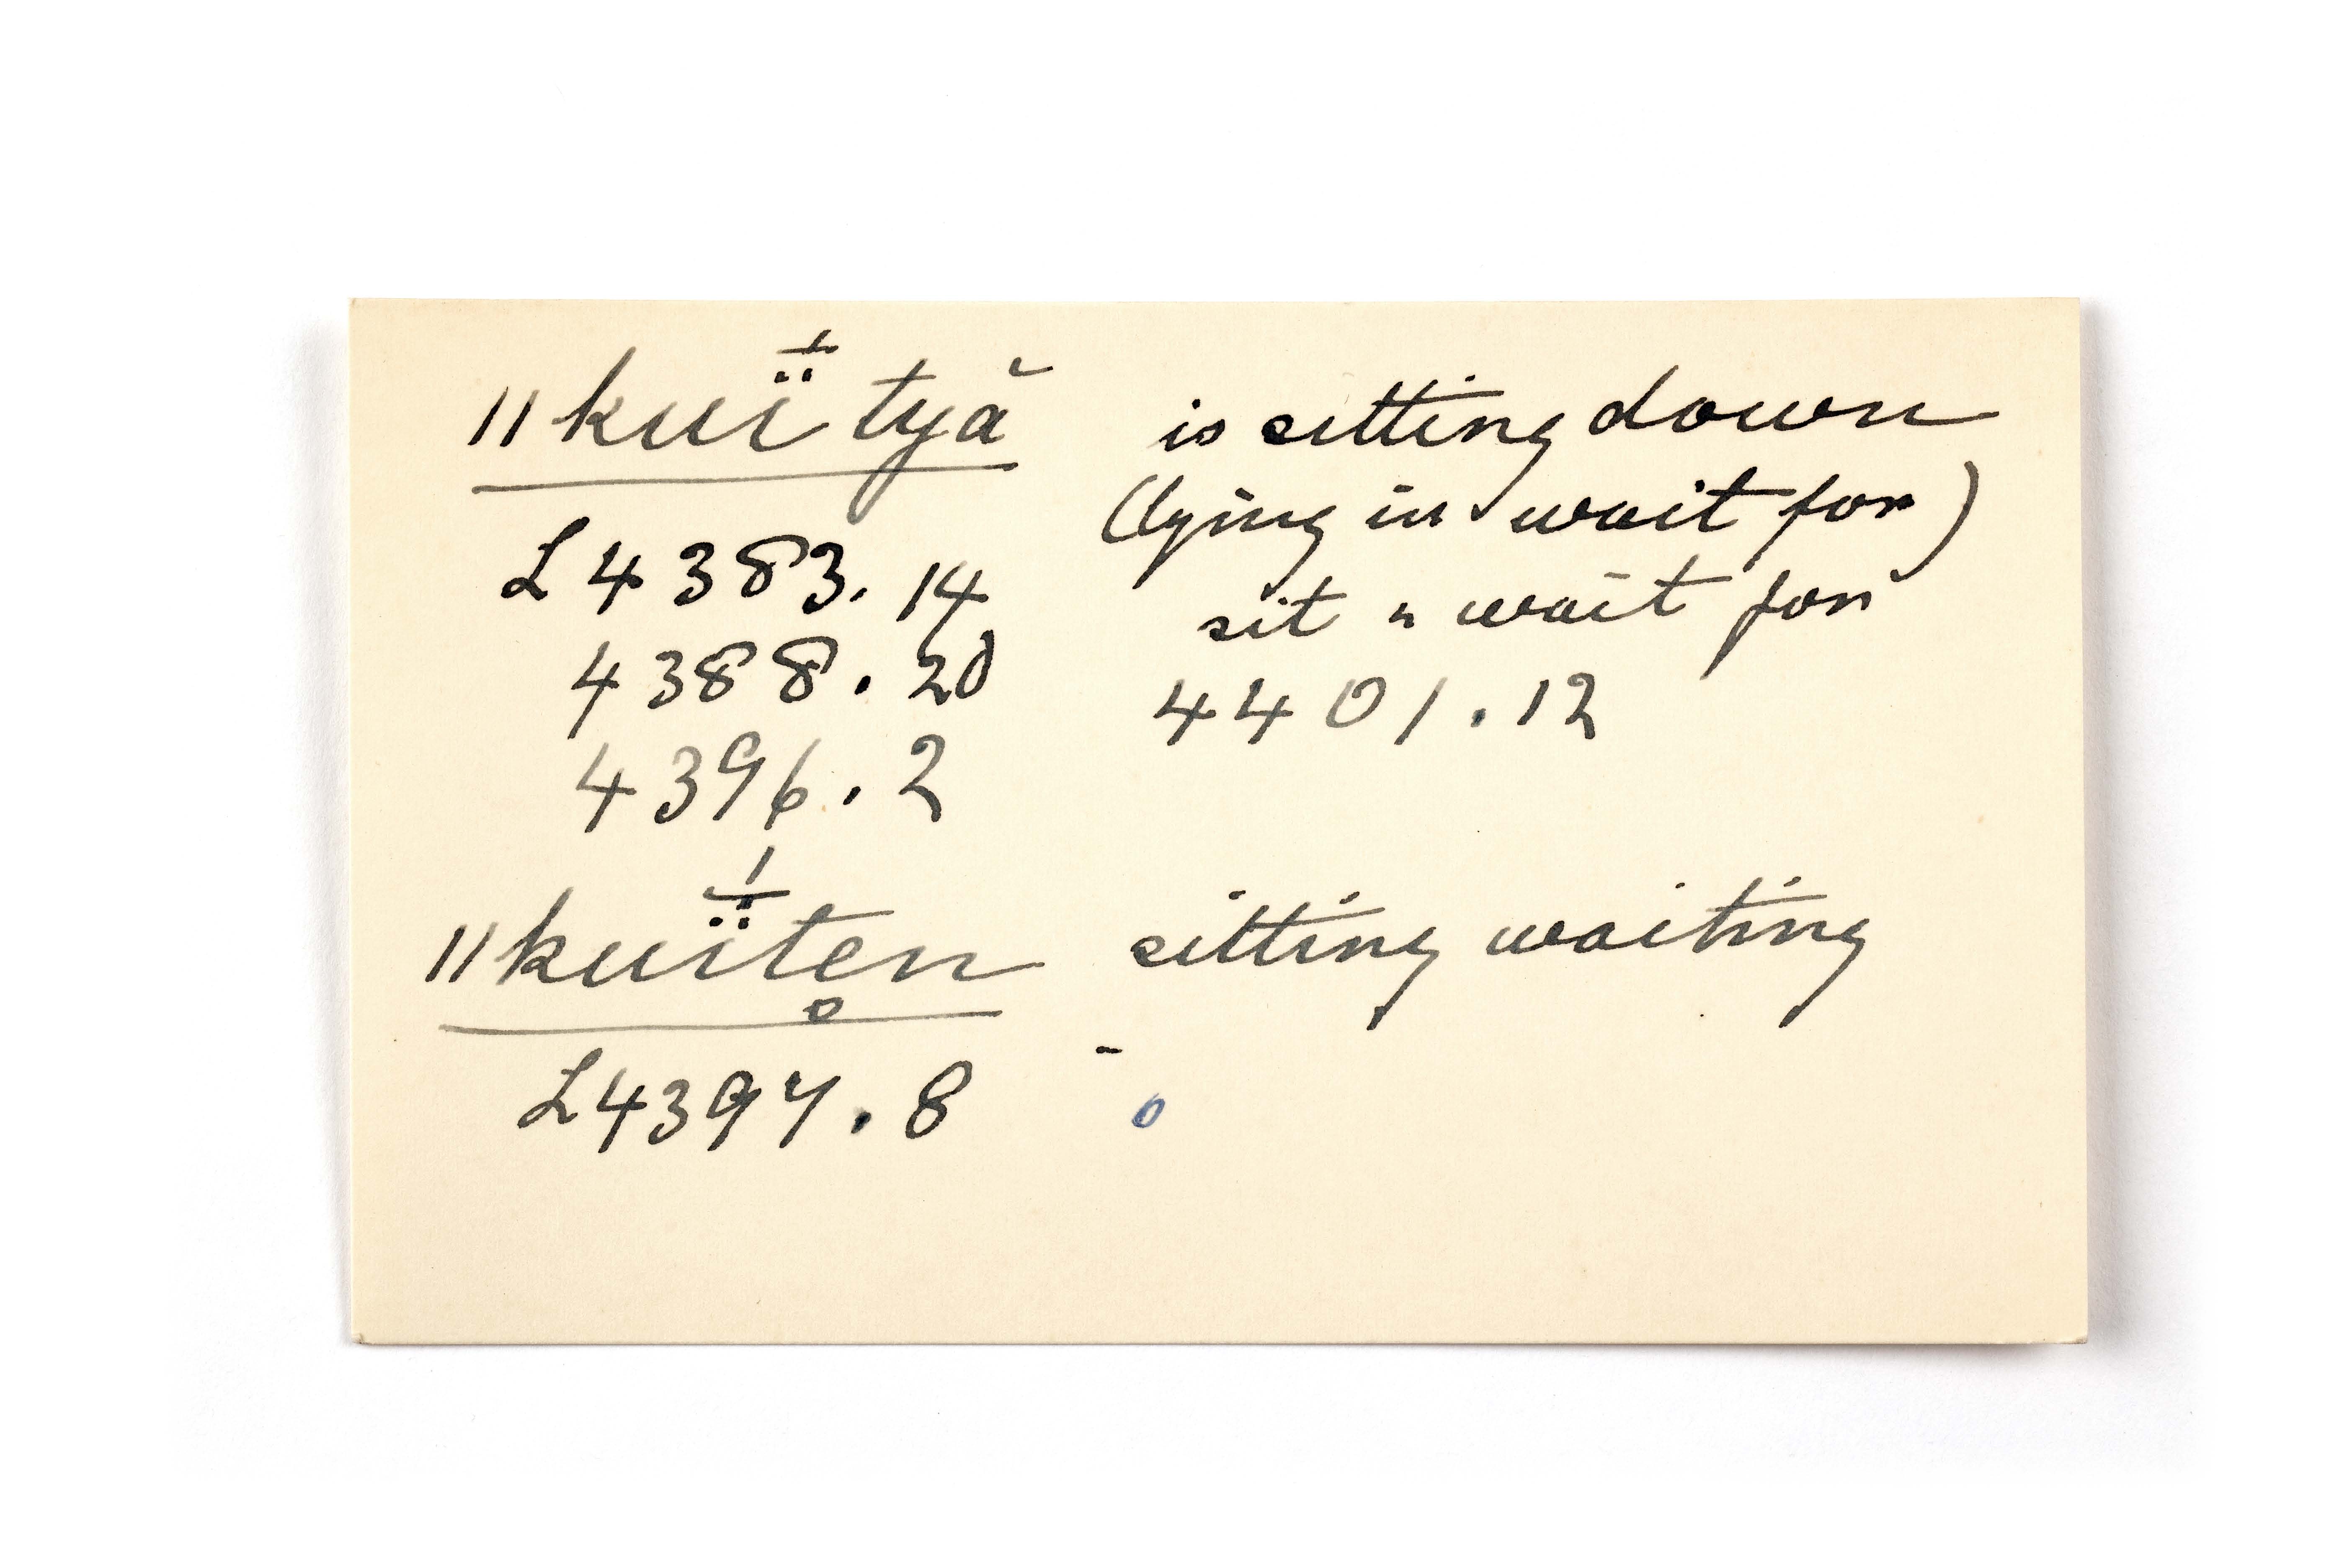 ǁkuḯ̵ tyă is sitting down
(lying in wait for)
L4383.14 sit " wait for
4388.20 4401.12
4396.2
ǁkuḯ̵ten̥ sitting waiting
L4397.8